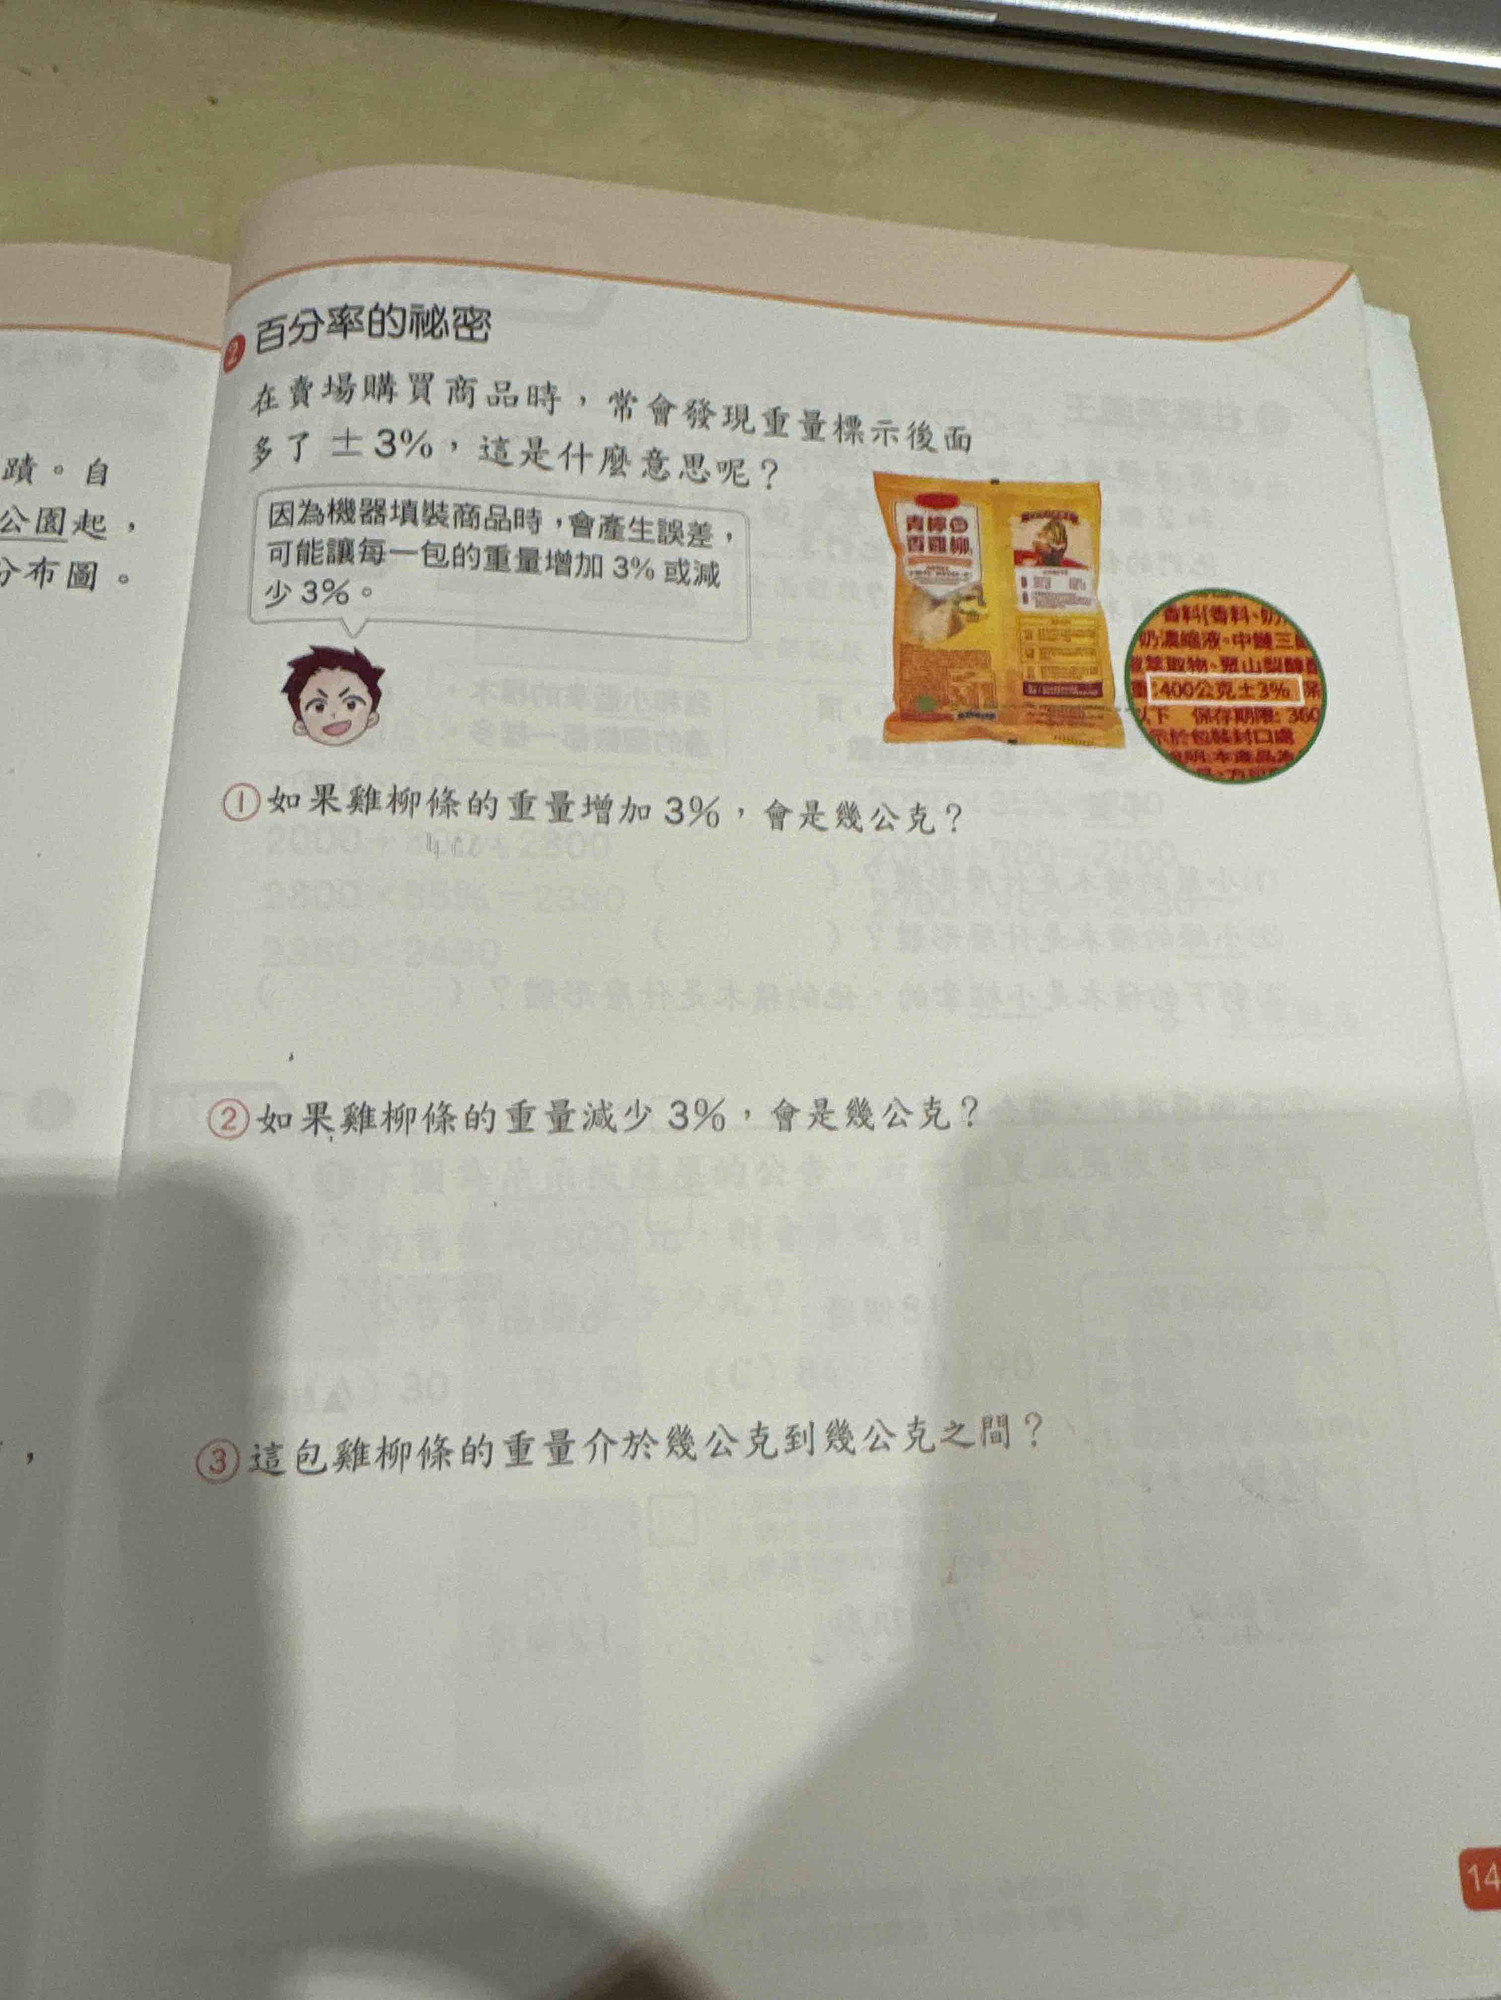 蹟。自
公園起，
分布圖。
2 百分率的祕密
在賣場購買商品時，常會發現重量標示後面
多了±3%，這是什麼意思呢？
因為機器填裝商品時，會產生誤差，
可能讓每一包的重量增加3%或減
少3%。
香雞柳
香料(香料、奶
奶濃縮液、中鏈三
萃取物、聚山梨醇
重:400公克±3%
以下 保存期限: 360
示於包裝封口處
說明:本產品為
①如果雞柳條的重量增加3%，會是幾公克？
400
②如果雞柳條的重量減少3%，會是幾公克？
③這包雞柳條的重量介於幾公克到幾公克之間？
，
14